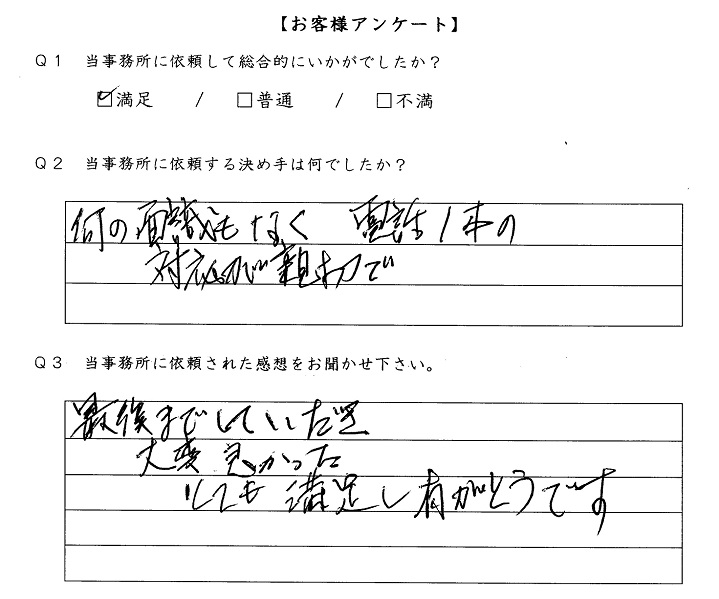 【お客様アンケート】
Q1 当事務所に依頼して総合的にいかがでしたか？
☑満足 / □普通 / □不満
Q2 当事務所に依頼する決め手は何でしたか？
何の面識もなく 電話1本の
対応が親切で
Q3 当事務所に依頼された感想をお聞かせ下さい。
最後までしていただき
大変良かった
とても満足し有がとうです